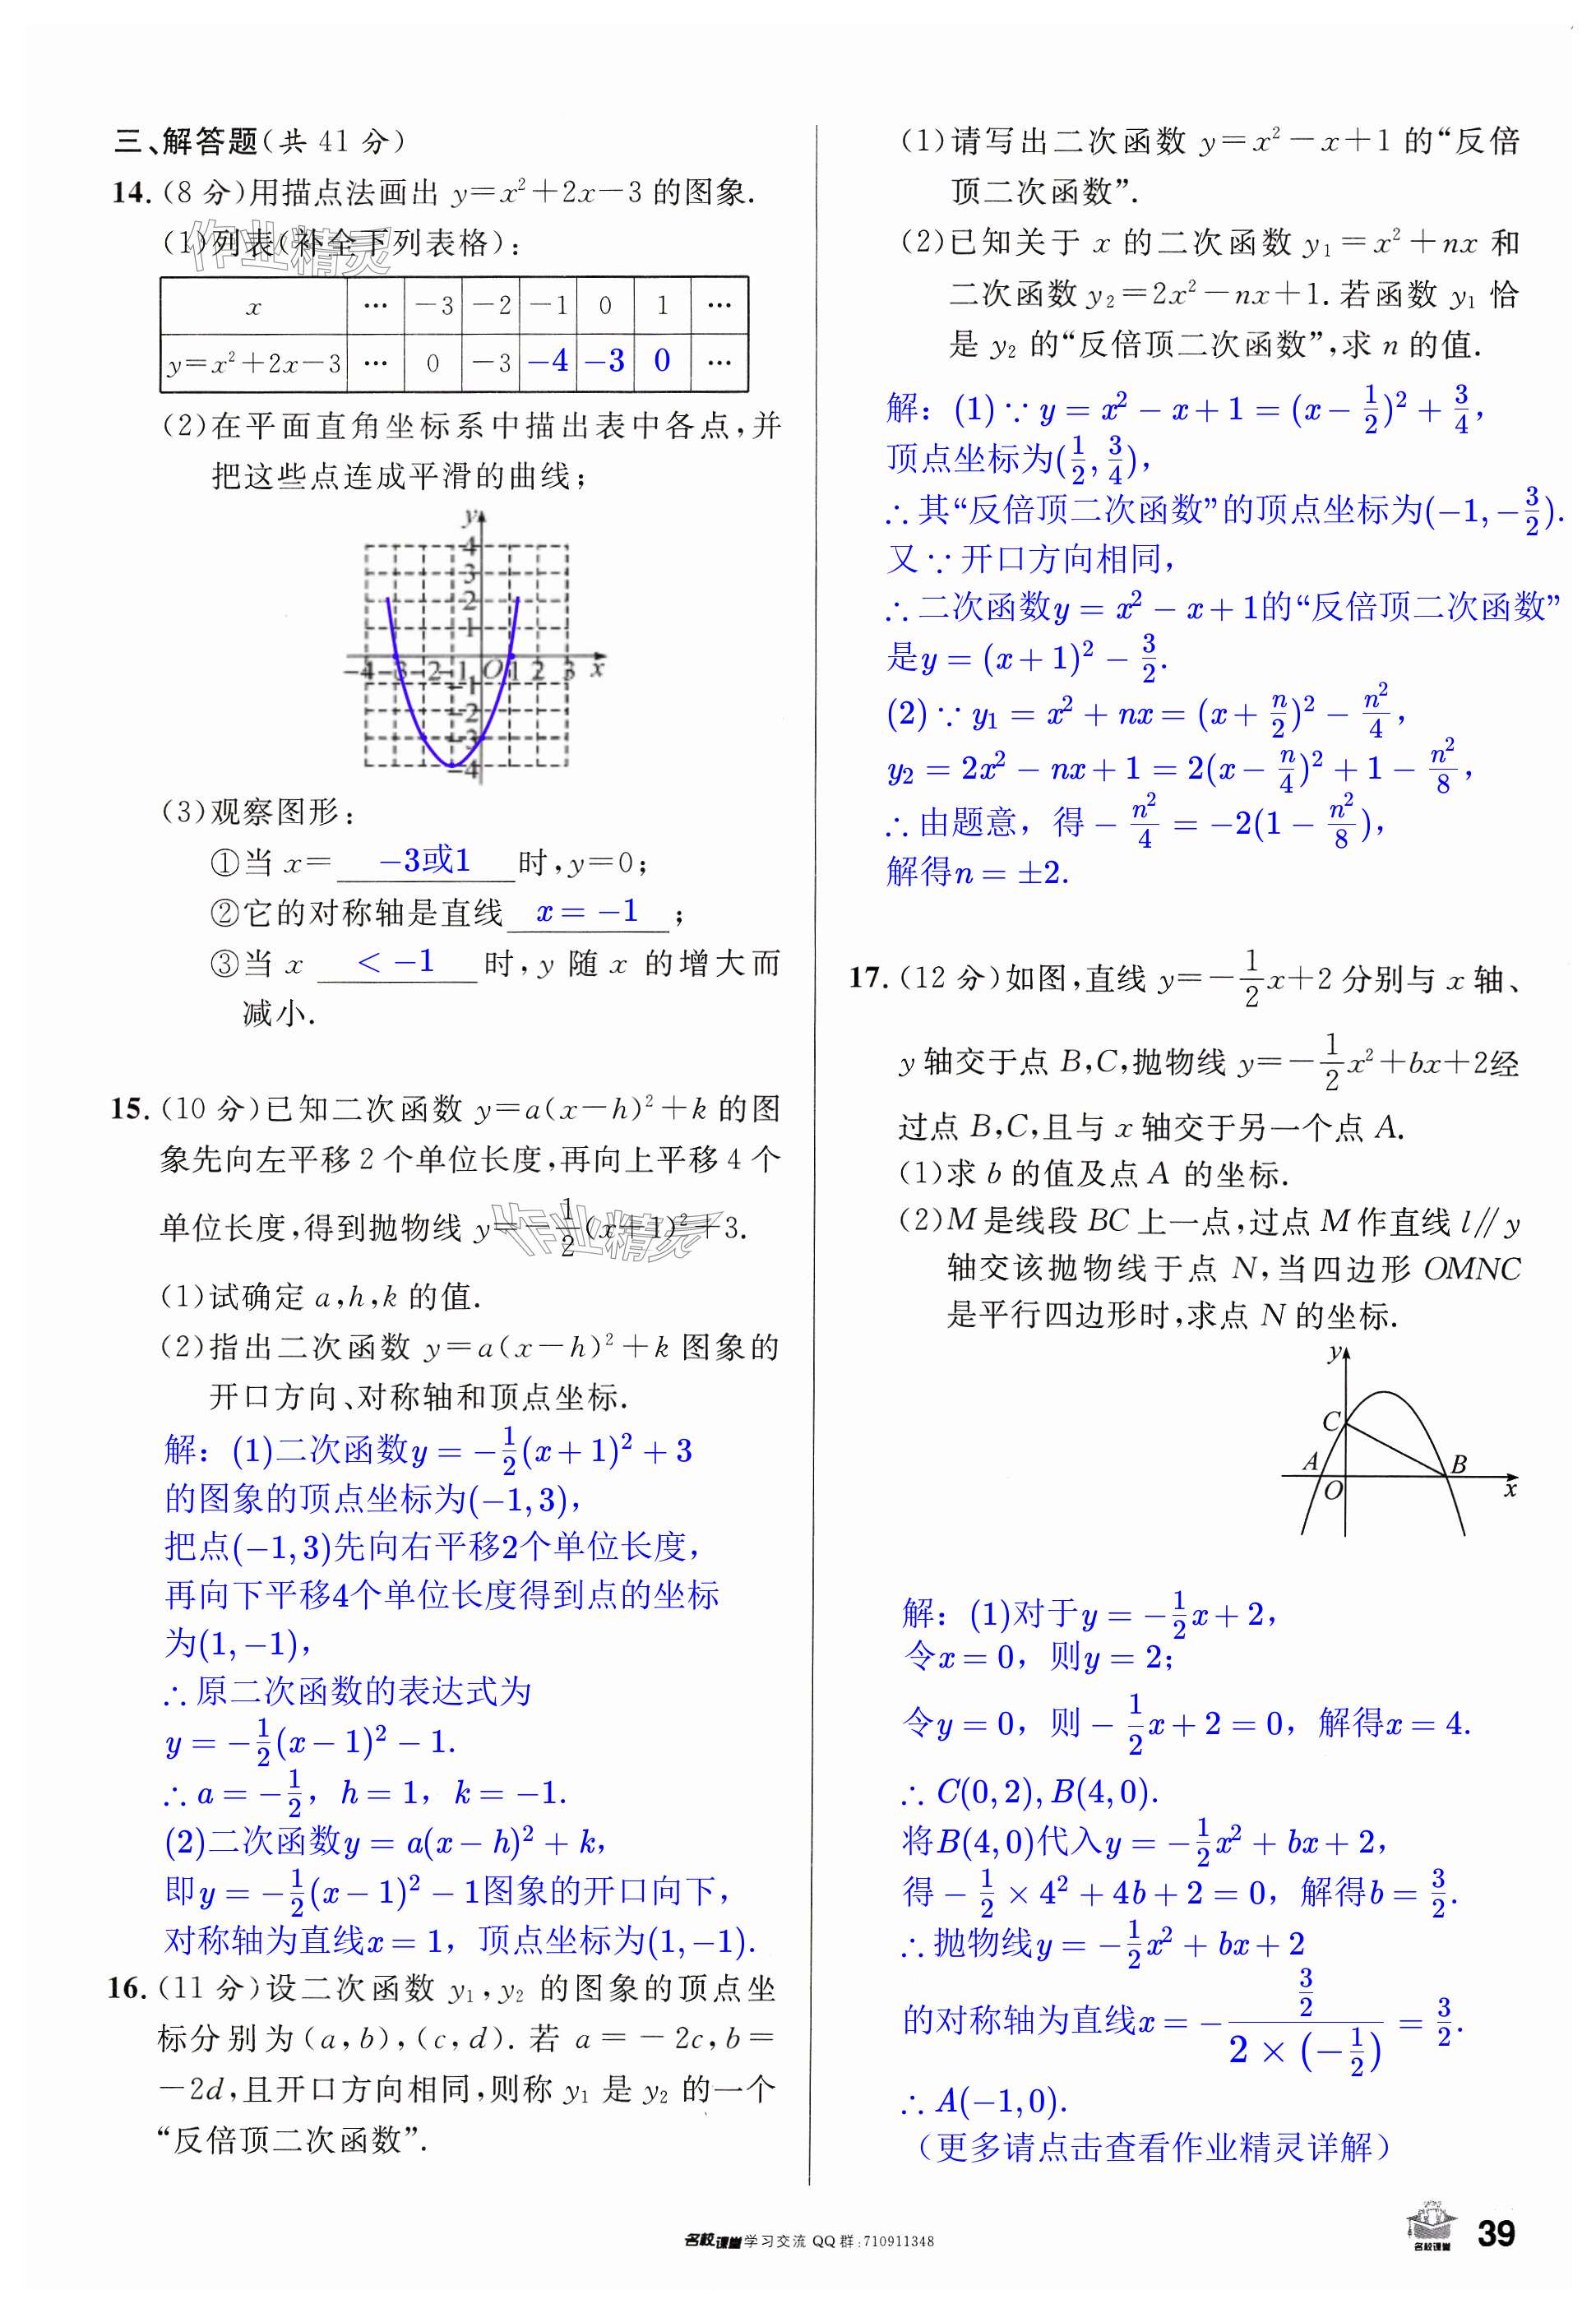 三、解答题(共 41 分)
14. (8 分)用描点法画出 y=x²+2x-3 的图象.
(1)列表(补全下列表格):
x … -3 -2 -1 0 1 …
y=x²+2x-3 … 0 -3 -4 -3 0 …
(2)在平面直角坐标系中描出表中各点,并
把这些点连成平滑的曲线;
y
4
3
2
1
-4 -3 -2 -1 O 1 2 3 x
-1
-2
-3
-4
(3)观察图形:
①当 x= -3或1 时,y=0;
②它的对称轴是直线 x = -1 ;
③当 x < -1 时,y 随 x 的增大而
减小.
15. (10 分)已知二次函数 y=a(x-h)²+k 的图
象先向左平移 2 个单位长度,再向上平移 4 个
单位长度,得到抛物线 y=-1/2(x+1)²+3.
(1)试确定 a,h,k 的值.
(2)指出二次函数 y=a(x-h)²+k 图象的
开口方向、对称轴和顶点坐标.
解:(1)二次函数y = -1/2(x+1)² + 3
的图象的顶点坐标为(-1,3),
把点(-1,3)先向右平移2个单位长度,
再向下平移4个单位长度得到点的坐标
为(1,-1),
∴原二次函数的表达式为
y = -1/2(x-1)² - 1.
∴a = -1/2, h = 1, k = -1.
(2)二次函数y = a(x-h)² + k,
即y = -1/2(x-1)² - 1图象的开口向下,
对称轴为直线x = 1, 顶点坐标为(1,-1).
16. (11 分)设二次函数 y₁,y₂ 的图象的顶点坐
标分别为(a,b),(c,d). 若 a=-2c,b=
-2d,且开口方向相同,则称 y₁ 是 y₂ 的一个
“反倍顶二次函数”.
(1)请写出二次函数 y=x²-x+1 的“反倍
顶二次函数”.
(2)已知关于 x 的二次函数 y₁=x²+nx 和
二次函数 y₂=2x²-nx+1. 若函数 y₁ 恰
是 y₂ 的“反倍顶二次函数”,求 n 的值.
解:(1)∵y = x² - x + 1 = (x - 1/2)² + 3/4,
顶点坐标为(1/2, 3/4),
∴其“反倍顶二次函数”的顶点坐标为(-1, -3/2).
又∵开口方向相同,
∴二次函数y = x² - x + 1的“反倍顶二次函数”
是y = (x+1)² - 3/2.
(2)∵y₁ = x² + nx = (x + n/2)² - n²/4,
y₂ = 2x² - nx + 1 = 2(x - n/4)² + 1 - n²/8,
∴由题意, 得 - n²/4 = -2(1 - n²/8),
解得n = ±2.
17. (12 分)如图,直线 y=-1/2x+2 分别与 x 轴、
y 轴交于点 B,C,抛物线 y=-1/2x²+bx+2经
过点 B,C,且与 x 轴交于另一个点 A.
(1)求 b 的值及点 A 的坐标.
(2)M 是线段 BC 上一点,过点 M 作直线 l∥y
轴交该抛物线于点 N,当四边形 OMNC
是平行四边形时,求点 N 的坐标.
y
C
A B
O x
解:(1)对于y = -1/2x + 2,
令x = 0, 则y = 2;
令y = 0, 则 - 1/2x + 2 = 0, 解得x = 4.
∴C(0,2), B(4,0).
将B(4,0)代入y = -1/2x² + bx + 2,
得 - 1/2 × 4² + 4b + 2 = 0, 解得b = 3/2.
∴抛物线y = -1/2x² + bx + 2
的对称轴为直线x = - (3/2)/(2 × (-1/2)) = 3/2.
∴A(-1,0).
(更多请点击查看作业精灵详解)
作业精灵
作业精灵
名校课堂 学习交流 QQ 群:710911348
名校课堂
39